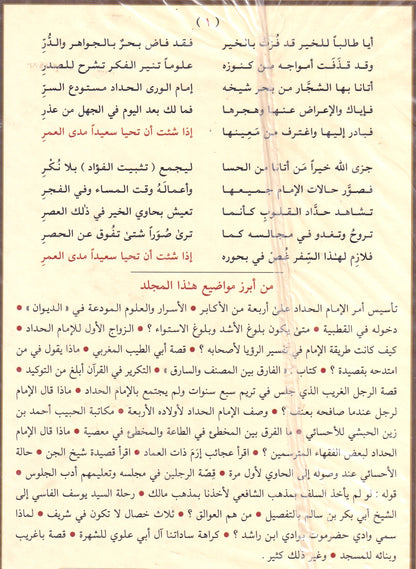 ( ١ )
أيا طالباً للخير قد فُزتَ بالخير فقد فاض بحرٌ بالجواهر والدُّرِّ
وقد قذَفَت أمواجه من كنوزه علوماً تنير الفكر تشرح للصدرِ
أتانا بها الشجَّار من بحر شيخه إمام الورى الحداد مستودع السرِّ
فإياك والإعراض عنها وهجرها فما لك بعد اليوم في الجهل من عذرِ
فبادر إليها واغترف من مَعِينها إذا شئت أن تحيا سعيداً مدى العمرِ
جزى الله خيراً مَن أتانا من الحسا ليجمع ( تثبيت الفؤاد ) بلا نُكْرِ
فصوَّر حالات الإمام جميعها وأعمالَهُ وقت المساء وفي الفجرِ
تشاهد حدَّاد القلوبِ كأنما تعيش بحاوي الخير في ذٰلك العصرِ
تروحُ وتغدو في مجالسه كما ترىٰ صُوَراً شتىٰ تفُوق عن الحصرِ
فلازِم لهٰذا السِّفر غُصْ في بحوره إذا شئت أن تحيا سعيداً مدى العمرِ
من أبرز مواضيع هٰذا المجلد
تأسيس أمر الإمام الحداد علىٰ أربعة من الأكابر • الأسرار والعلوم المودعة في « الديوان » •
دخوله في القطبية • متىٰ يكون بلوغ الأشد وبلوغ الاستواء ؟ • الزواج الأول للإمام الحداد •
كيف كانت طريقة الإمام في تفسير الرؤيا لأصحابه ؟ • قصة أبي الطيب المغربي • ماذا يقول في من
امتدحه بقصيدة ؟ • كتاب : « الفارق بين المصنف والسارق » • التكرير في القرآن أبلغ من التوكيد •
قصة الرجل الغريب الذي جلس في تريم سبع سنوات ولم يجتمع بالإمام الحداد • ماذا قال الإمام
لرجل عندما صافحه بعنف ؟ • وصف الإمام الحداد لأولاده الأربعة • مكاتبة الحبيب أحمد بن
زين الحبشي للأحسائي • ما الفرق بين المخطئ في الطاعة والمخطئ في معصية • ماذا قال الإمام
الحداد لبعض الفقهاء المترسمين ؟ • اقرأ عجائب إرَمَ ذات العماد • اقرأ قصيدة شيخ الجن • حالة
الأحسائي عند وصوله إلى الحاوي لأول مرة • قصّة الرجلين في مجلسه وتعليمهم أدب الجلوس •
قوله : لو لم يأخذ السلف بمذهب الشافعي لأخذنا بمذهب مالك • رحلة السيد يوسف الفاسي إلى
الشيخ أبي بكر بن سالم بالتفصيل • من هم العوالق ؟ • ثلاث خصال لا تكون في شريف • لماذا
سمي وادي حضرموت بوادي ابن راشد ؟ • كراهة ساداتنا آل أبي علوي للشهرة • قصة باغريب
وبنائه للمسجد • وغير ذلك كثير .